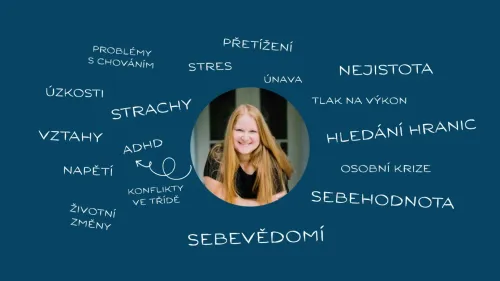 PŘETÍŽENÍ
PROBLÉMY
S CHOVÁNÍM
STRES
NEJISTOTA
ÚNAVA
ÚZKOSTI
STRACHY
TLAK NA VÝKON
VZTAHY
ADHD
HLEDÁNÍ HRANIC
NAPĚTÍ
OSOBNÍ KRIZE
KONFLIKTY
VE TŘÍDĚ
SEBEHODNOTA
ŽIVOTNÍ
ZMĚNY
SEBEVĚDOMÍ